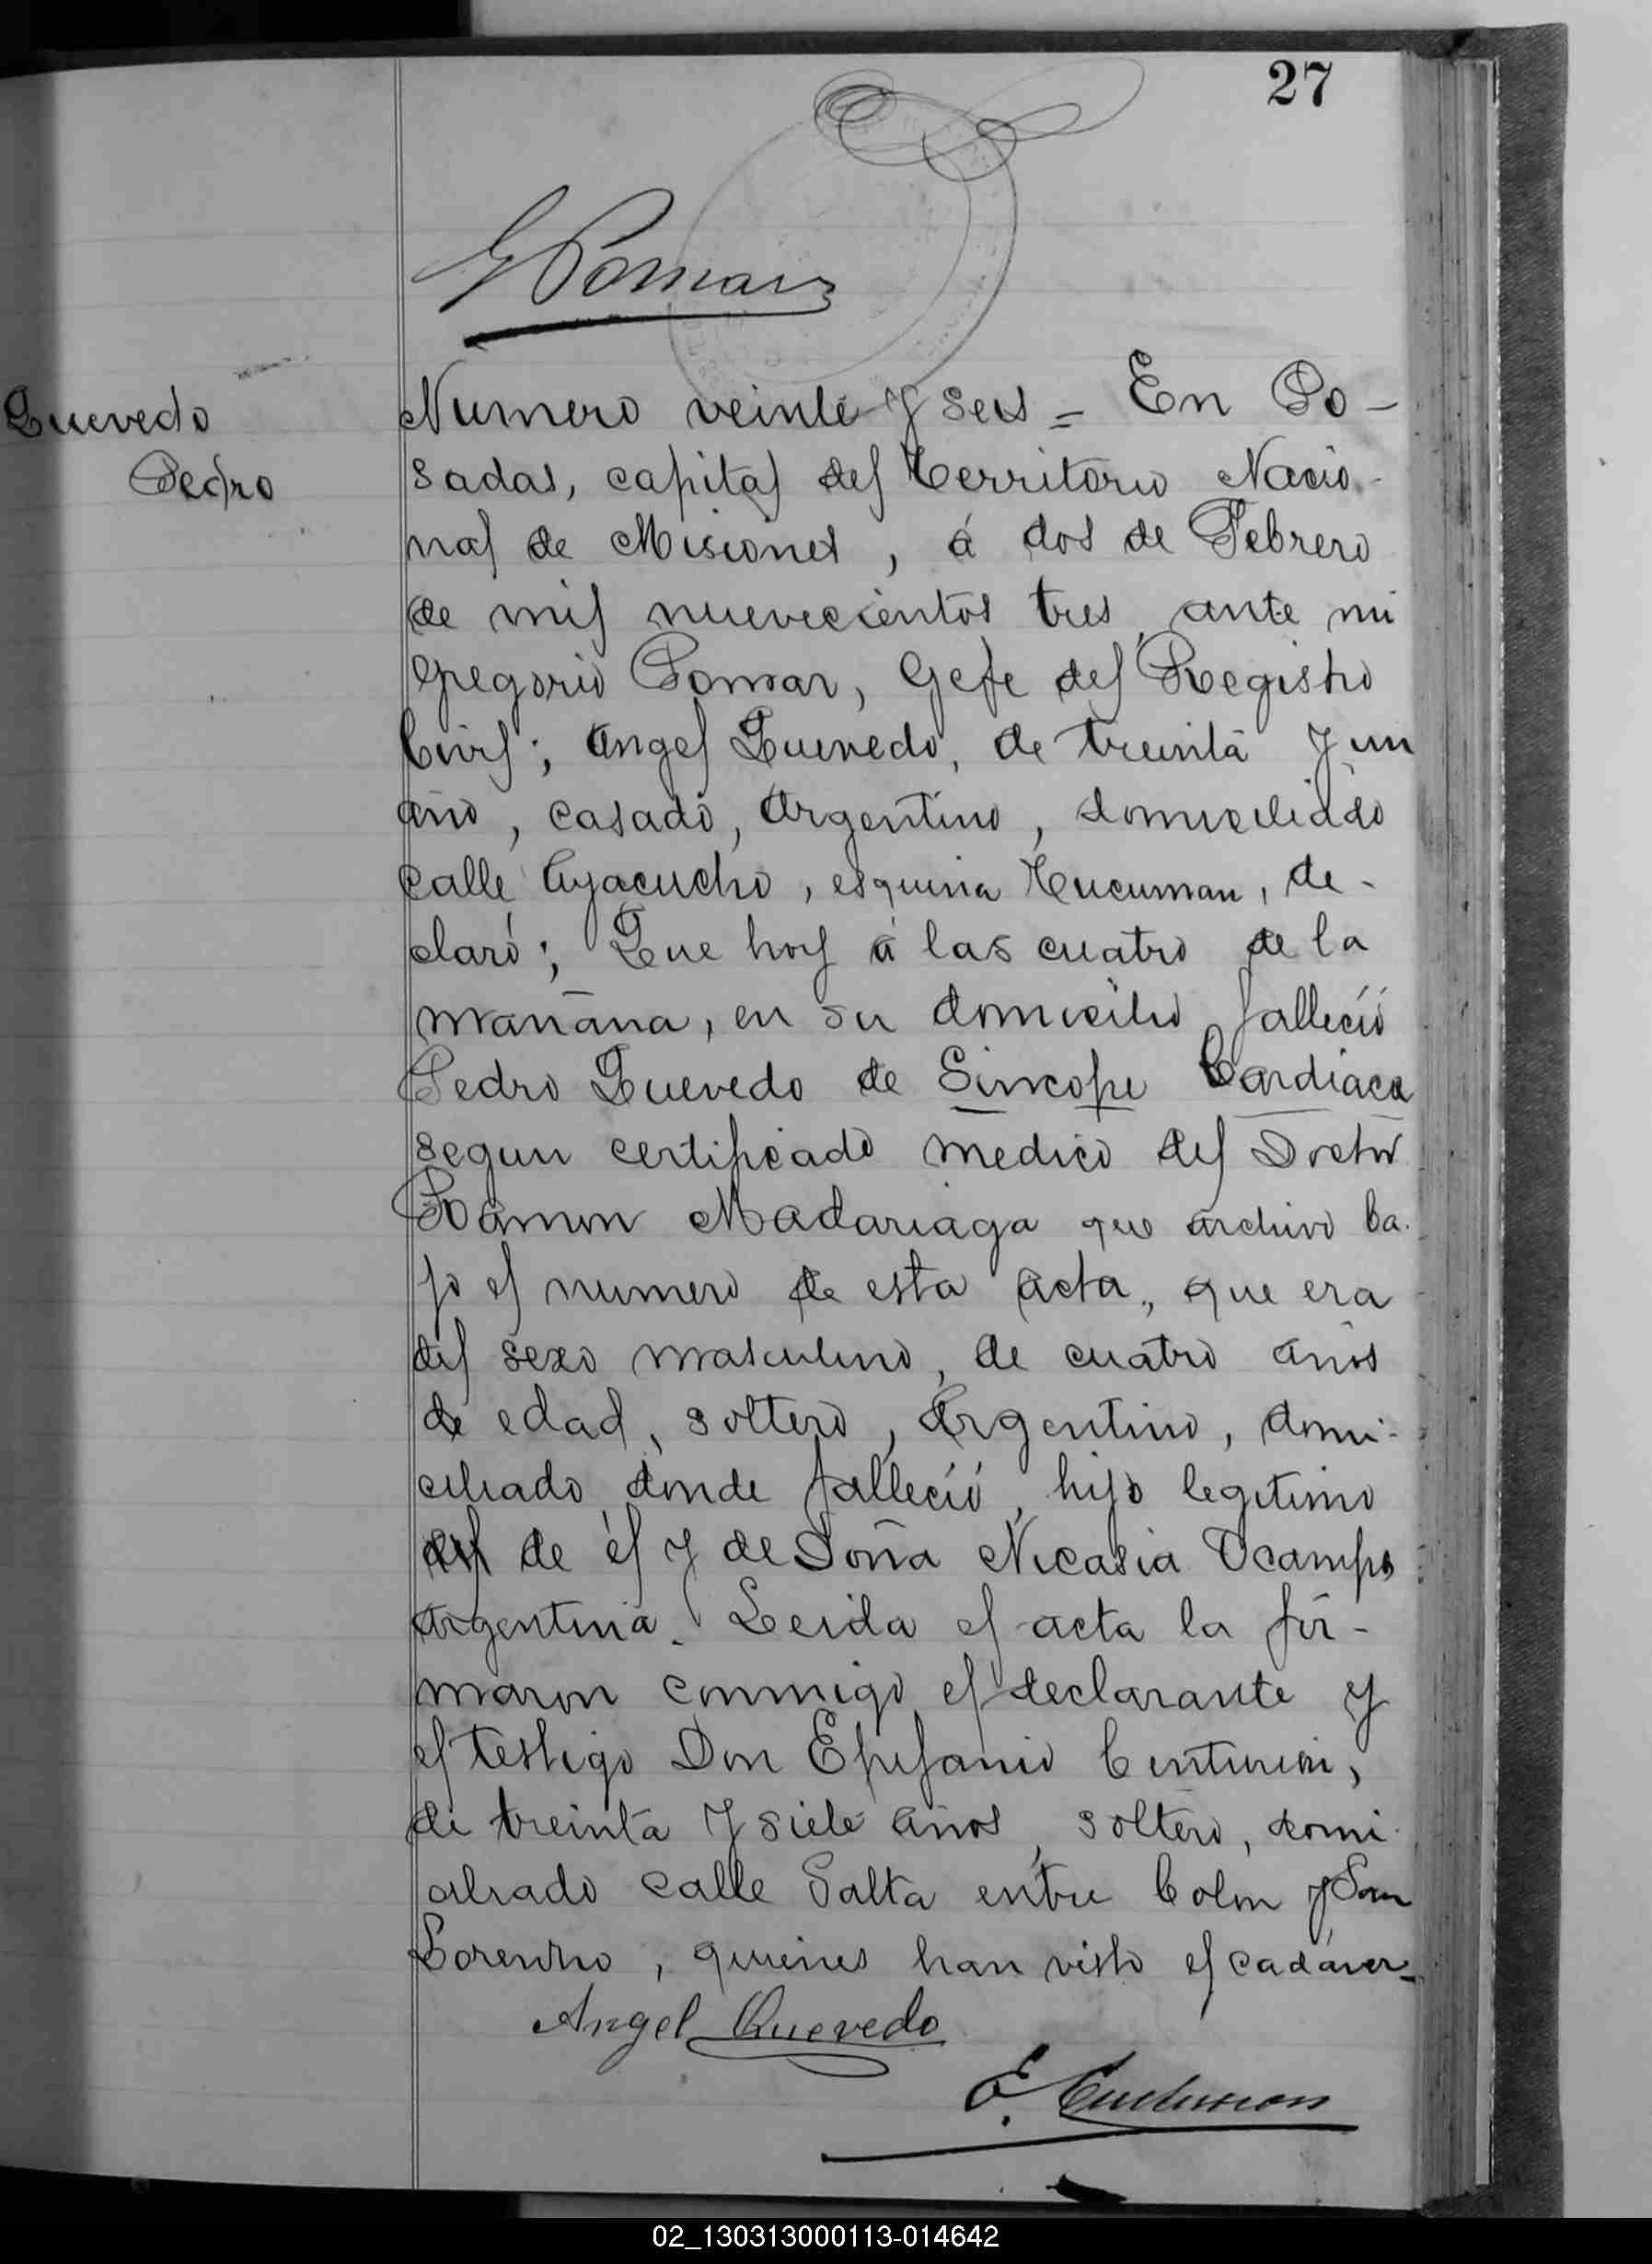 27
G Pomar
Quevedo
Pedro
Numero veinte y seis = En Po-
sadas, capital del Territorio Nacio-
nal de Misiones, á dos de Febrero
de mil nuevecientos tres, ante mi
Gregorio Pomar, Gefe del Registro
Civil; Angel Quevedo, de treinta y un
año, casado, Argentino, domiciliado
calle Ayacucho, esquina Tucuman, de-
claró; Que hoy á las cuatro de la
mañana, en su domicilio falleció
Pedro Quevedo de Sincope Cardiaca
segun certificado medico del Doctor
Ramon Madariaga que archivo ba-
jo el numero de esta acta, que era
del sexo masculino, de cuatro años
de edad, soltero, Argentino, domi-
ciliado donde falleció, hijo legitimo
del de él y de Doña Nicasia Ocampo
Argentina. Leida el acta la fir-
maron conmigo el declarante y
el testigo Don Epifanio Centurion,
de treinta y siete años, soltero, domi-
ciliado calle Salta entre Colon y San
Lorenzo, quienes han visto el cadáver=
Angel Quevedo
E. Centurion
02_130313000113-014642